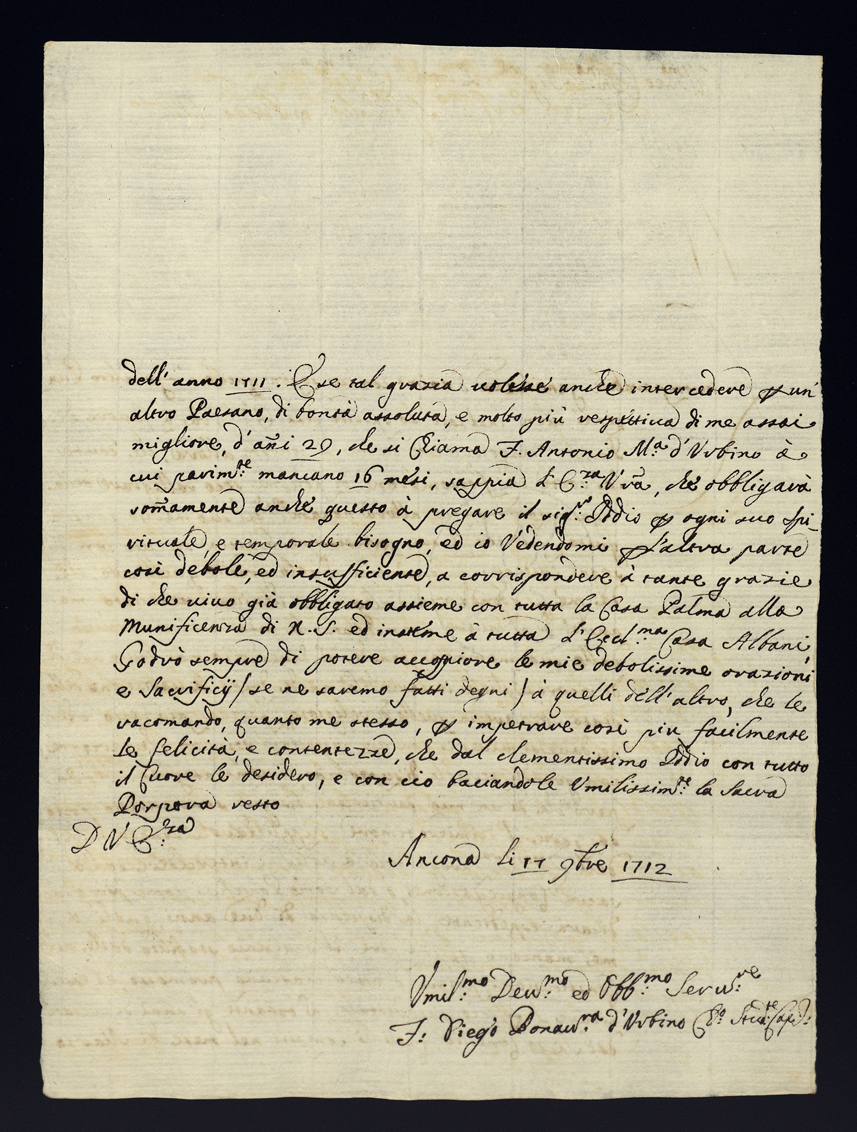 dell'anno 1711: E se tal grazia volesse anche intercedere p un
altro Paesano, di bontà assoluta, e molto più respettiva di me assai
migliore, d'añi 29, che si Chiama F. Antonio M.ª d'Urbino à
cui parim.te mancano 16 mesi, sappia l'E.za Vr̃a, che obbligarà
som̃amente anche questo à pregare il sig.re Iddio p ogni suo spi-
rituale, e temporale bisogno, ed io Vedendomi p l'altra parte
così debole, ed insufficiente, a corrispondere à tante grazie
di che vivo già obbligato assieme con tutta la Casa Palma alla
Munificenza di N. S. ed insieme à tutta l'Eccl.ma Casa Albani
Godrò sempre di potere accoppiare le mie debolissime orazioni
e Sacrificij / se ne saremo fatti degni / à quelli dell'altro, che le
racomando, quanto me stesso, p impetrare così più facilmente
le felicità, e contentezze, che dal clementissimo Iddio con tutto
il Cuore le desidero, e con ciò baciandole Umilissim.te la Sacra
Porpora resto
D V E.za
Ancona li 17 9bre 1712
Umil.mo Dev.mo ed Obb.mo Serv.re
F. Diego Bonav.ra d'Urbino Ch.o Stud.te Capp.